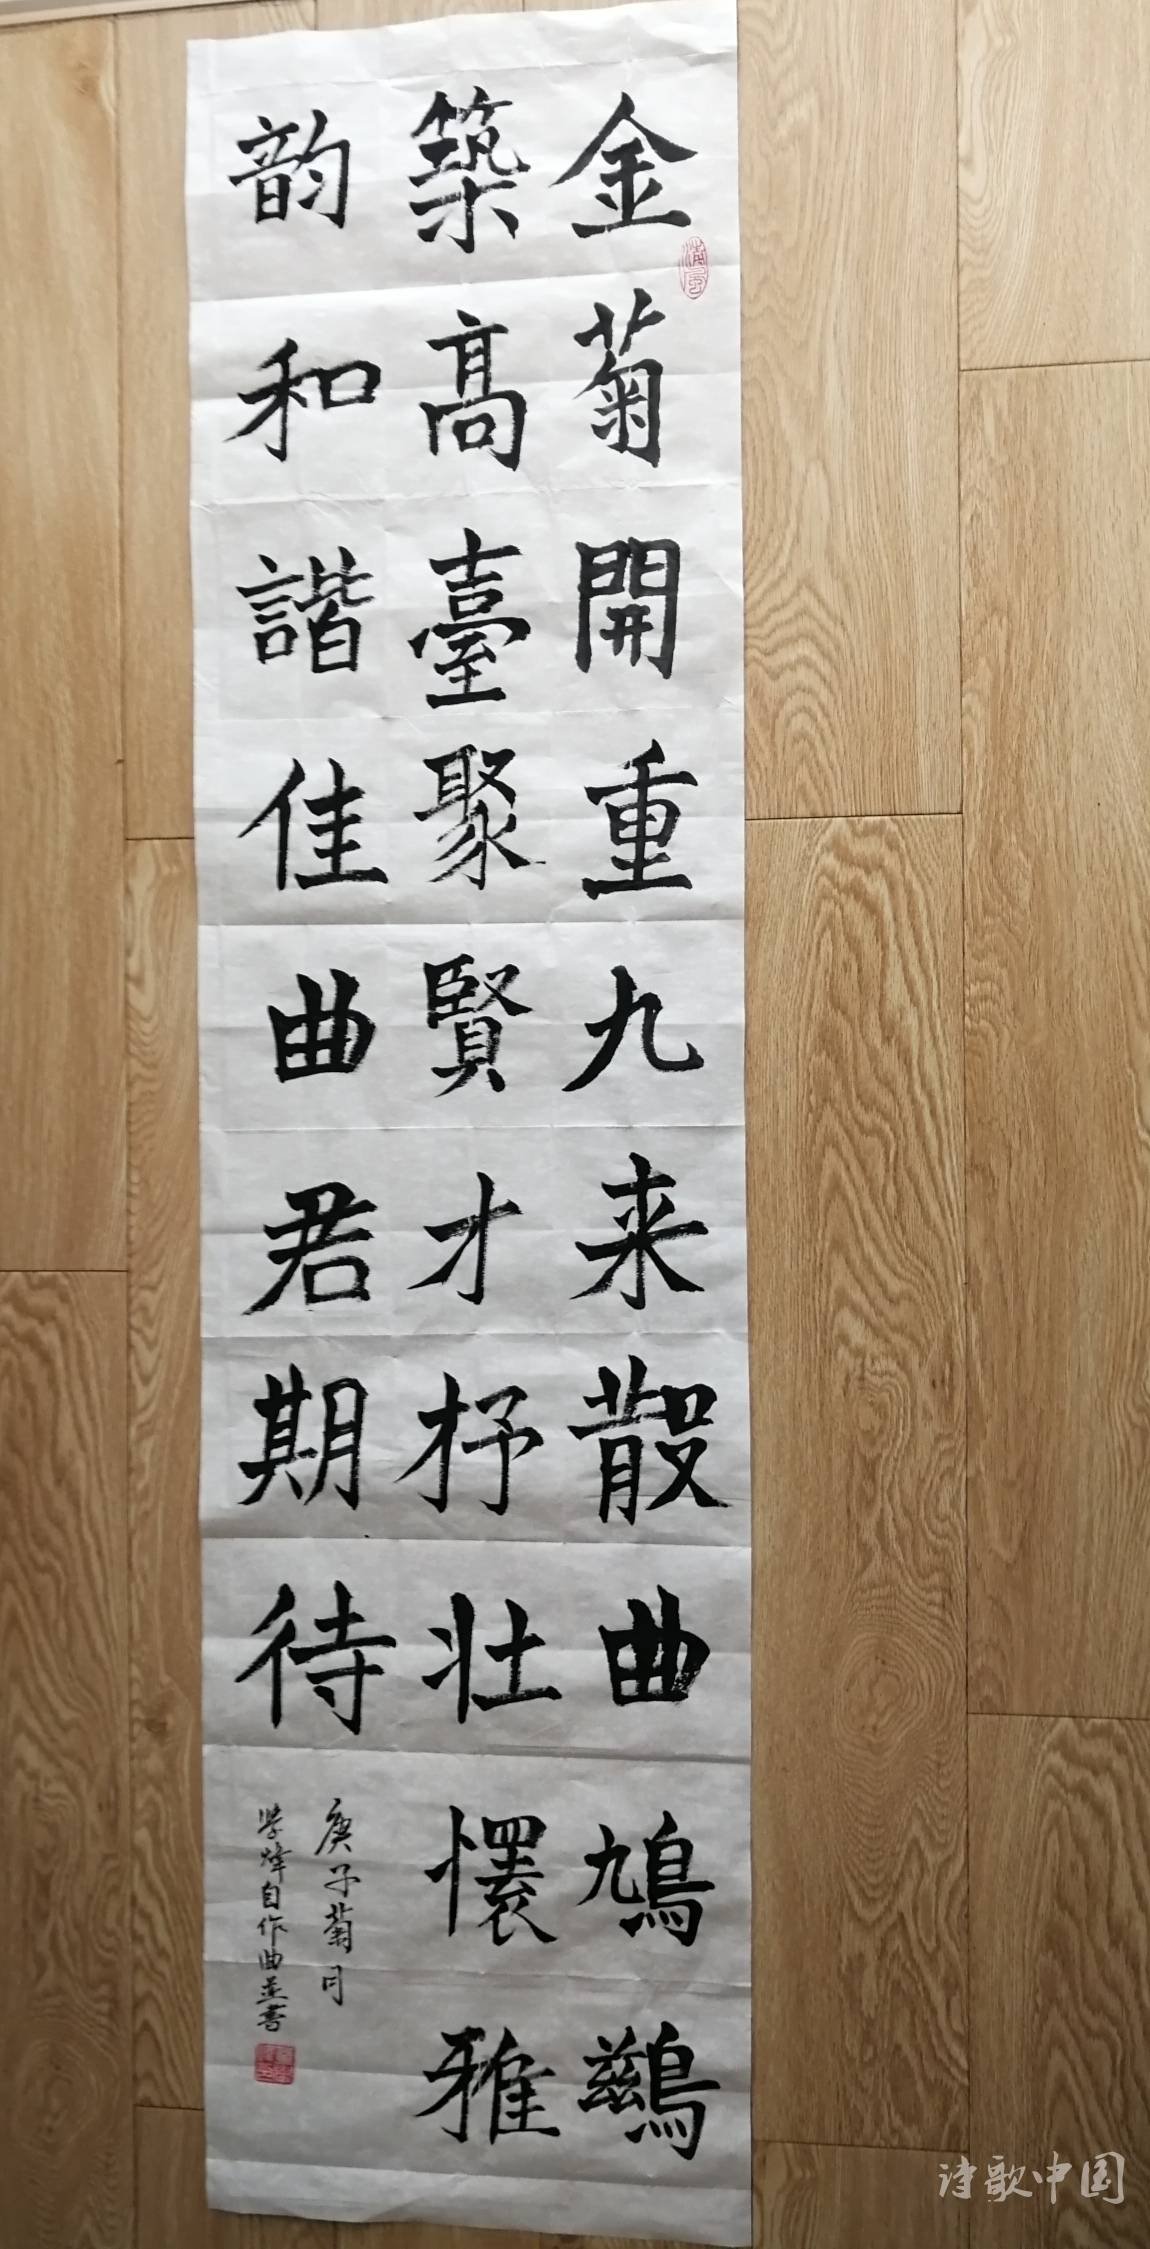 金菊開重九来散曲鳩鷀
築高臺聚賢才抒壯懷雅
韵和諧佳曲君期待
庚子菊月
学烽自作曲並書
诗歌中国